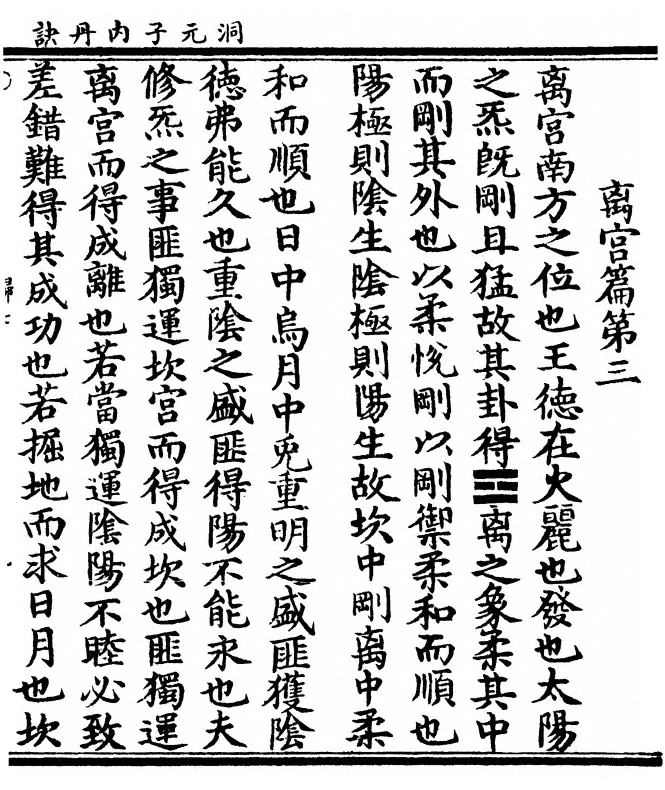 洞元子内丹訣
离宮篇第三
离宮南方之位也王德在火麗也發也太陽
之炁旣剛且猛故其卦得☲离之象柔其中
而剛其外也以柔悅剛以剛禦柔和而順也
陽極則陰生陰極則陽生故坎中剛离中柔
和而順也日中烏月中兎重明之盛匪獲陰
德弗能久也重陰之盛匪得陽不能永也夫
修炁之事匪獨運坎宮而得成坎也匪獨運
离宮而得成離也若當獨運陰陽不睦必致
差錯難得其成功也若掘地而求日月也坎